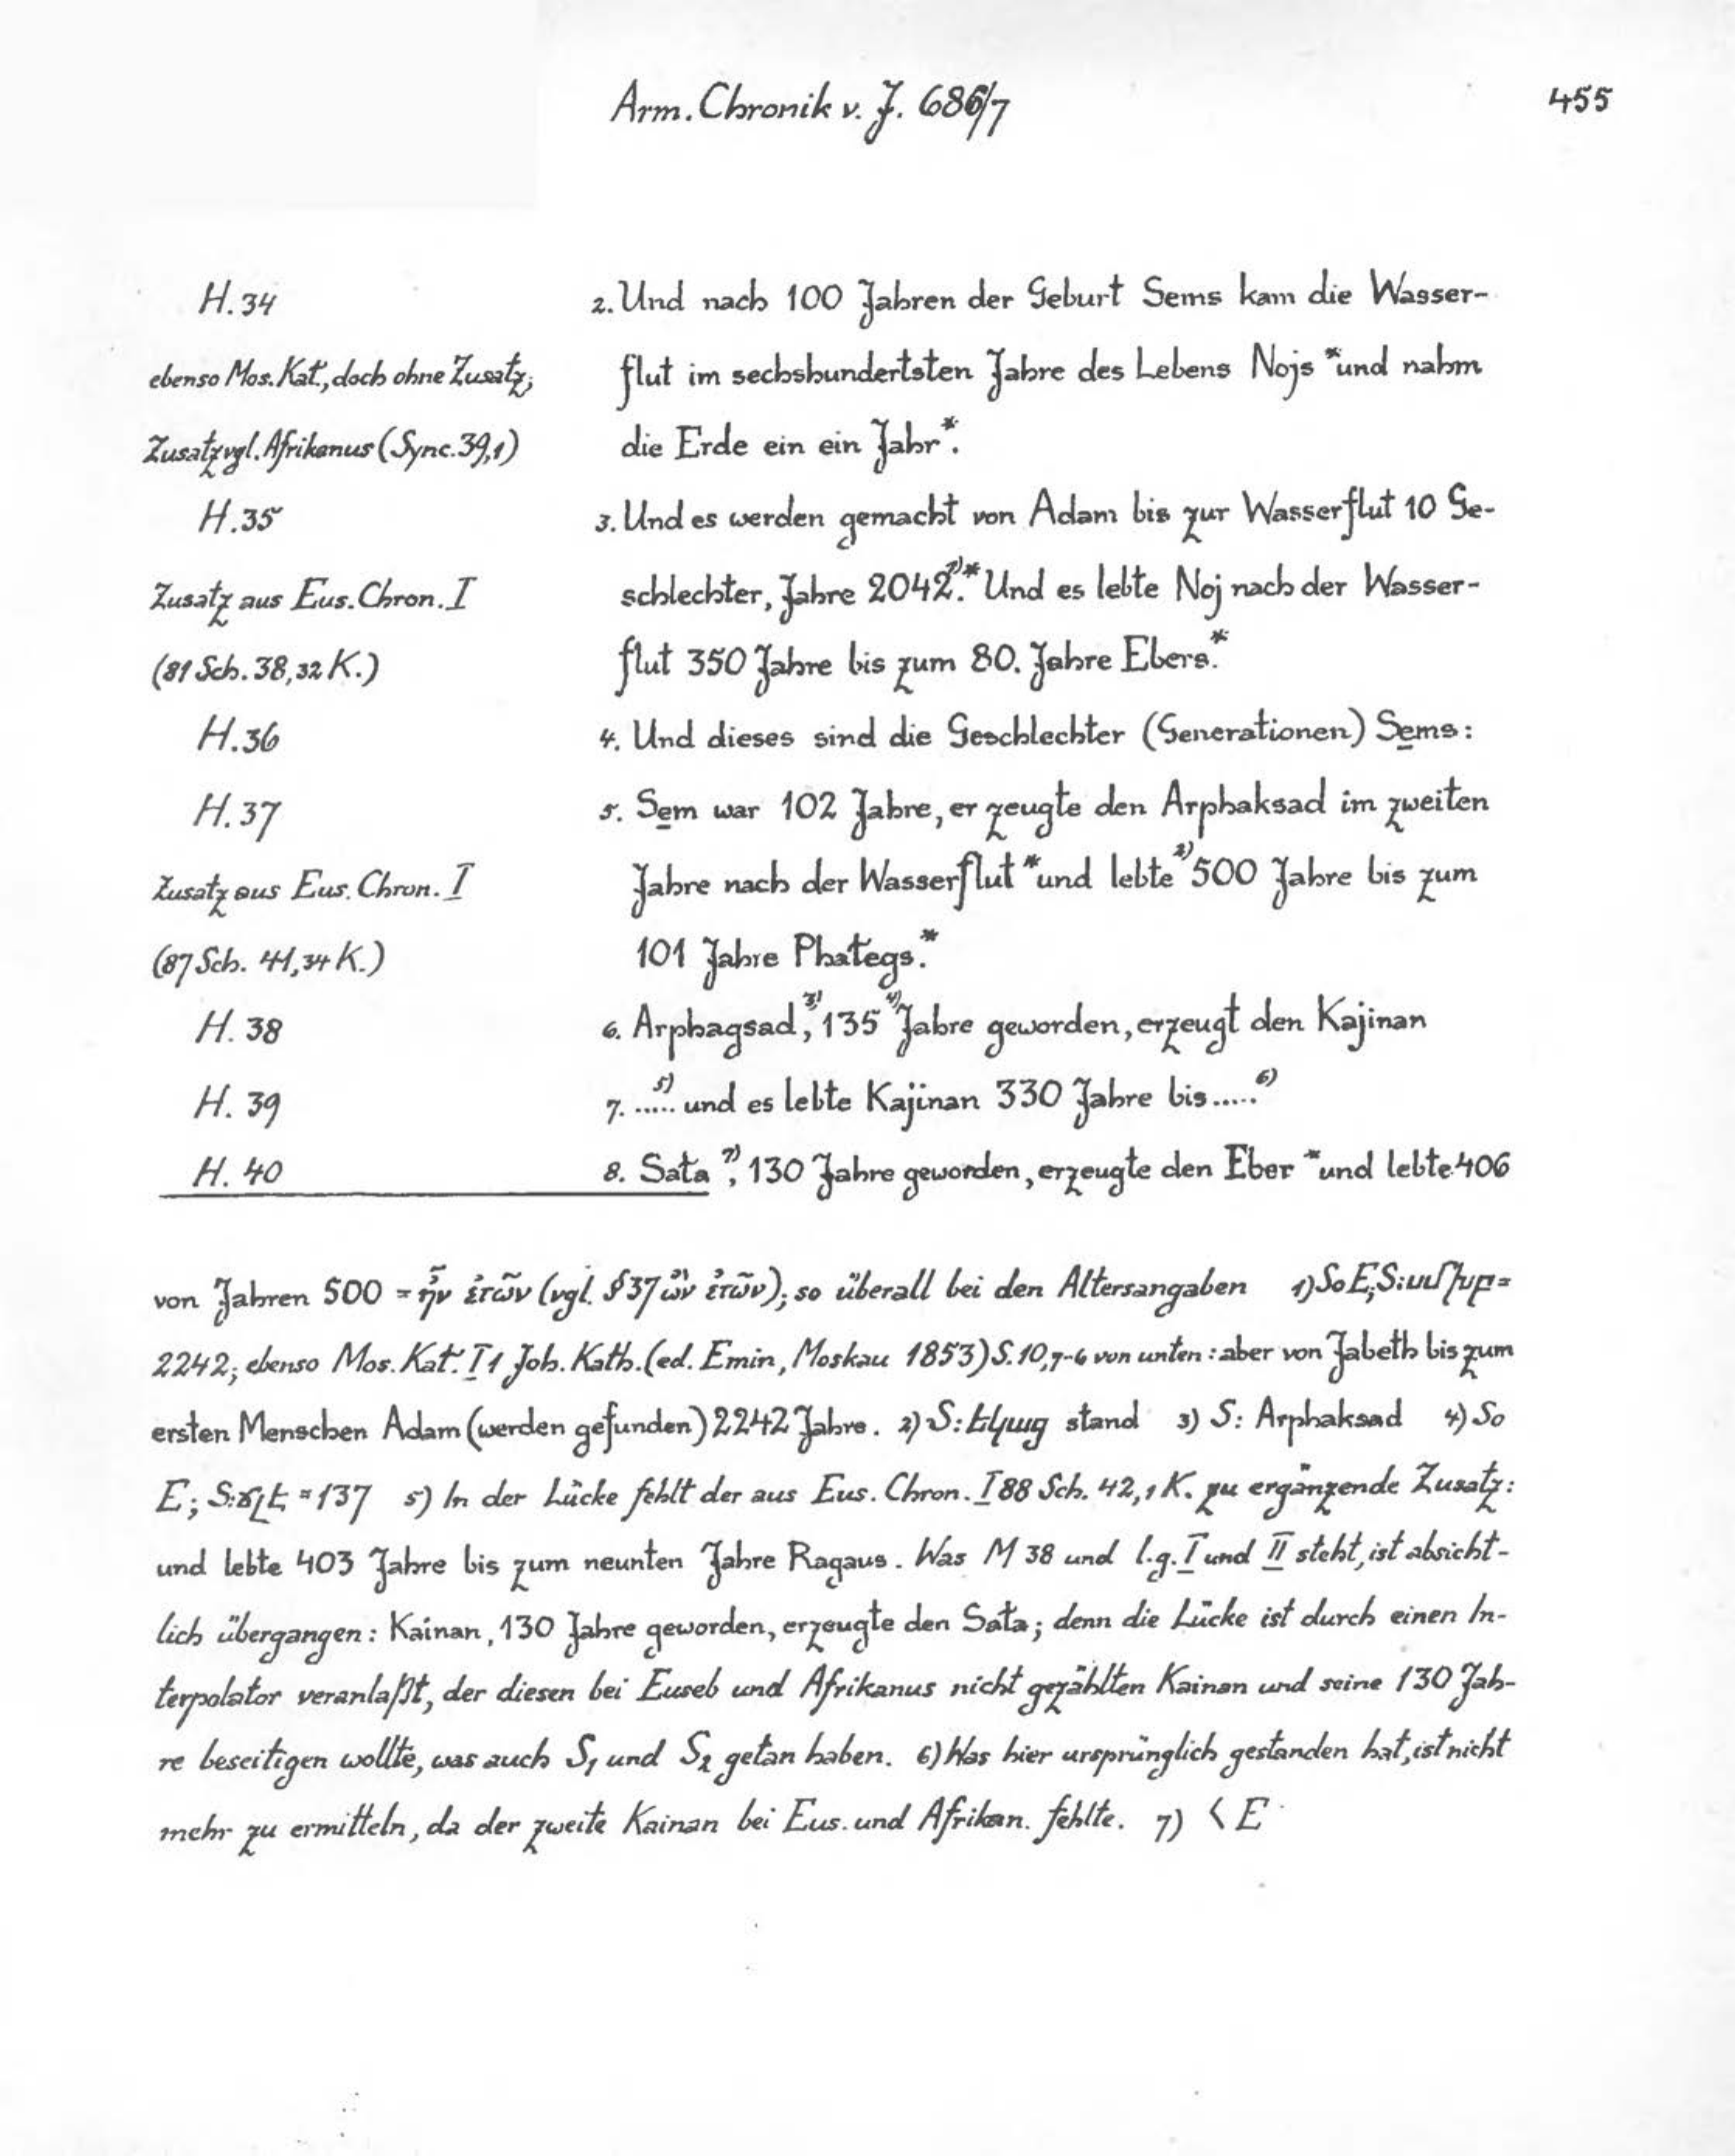 Arm. Chronik v. J. 686/7
455
H. 34
2. Und nach 100 Jahren der Geburt Sems kam die Wasser-
ebenso Mos. Kat., doch ohne Zusatz;
flut im sechshundertsten Jahre des Lebens Nojs *und nahm
Zusatz vgl. Afrikanus (Sync. 39,1)
die Erde ein ein Jahr*.
H. 35
3. Und es werden gemacht von Adam bis zur Wasserflut 10 Ge-
Zusatz aus Eus. Chron. I
schlechter, Jahre 2042.¹⁾* Und es lebte Noj nach der Wasser-
(81 Sch. 38,32 K.)
flut 350 Jahre bis zum 80. Jahre Ebers.*
H. 36
4. Und dieses sind die Geschlechter (Generationen) Sems:
H. 37
5. Sem war 102 Jahre, er zeugte den Arphaksad im zweiten
Zusatz aus Eus. Chron. I
Jahre nach der Wasserflut *und lebte ²⁾ 500 Jahre bis zum
(87 Sch. 41,34 K.)
101 Jahre Phategs.*
H. 38
6. Arphagsad,³⁾ 135 ⁴⁾ Jahre geworden, erzeugt den Kajinan
H. 39
7. .....⁵⁾ und es lebte Kajinan 330 Jahre bis .....⁶⁾
H. 40
8. Sata ⁷⁾, 130 Jahre geworden, erzeugte den Eber *und lebte 406
von Jahren 500 = ἦν ἐτῶν (vgl. § 37 ὢν ἐτῶν); so überall bei den Altersangaben 1) So E; S: ՍՄԽԲ =
2242; ebenso Mos. Kat. I 1 Joh. Kath. (ed. Emin, Moskau 1853) S. 10,7-6 von unten: aber von Jabeth bis zum
ersten Menschen Adam (werden gefunden) 2242 Jahre. 2) S: եկաց stand 3) S: Arphaksad 4) So
E; S: ՃԼԷ = 137 5) In der Lücke fehlt der aus Eus. Chron. I 88 Sch. 42,1 K. zu ergänzende Zusatz:
und lebte 403 Jahre bis zum neunten Jahre Ragaus. Was M 38 und l.g. I und II steht, ist absicht-
lich übergangen: Kainan, 130 Jahre geworden, erzeugte den Sata; denn die Lücke ist durch einen In-
terpolator veranlaßt, der diesen bei Euseb und Afrikanus nicht gezählten Kainan und seine 130 Jah-
re beseitigen wollte, was auch S₁ und S₂ getan haben. 6) Was hier ursprünglich gestanden hat, ist nicht
mehr zu ermitteln, da der zweite Kainan bei Eus. und Afrikan. fehlte. 7) < E